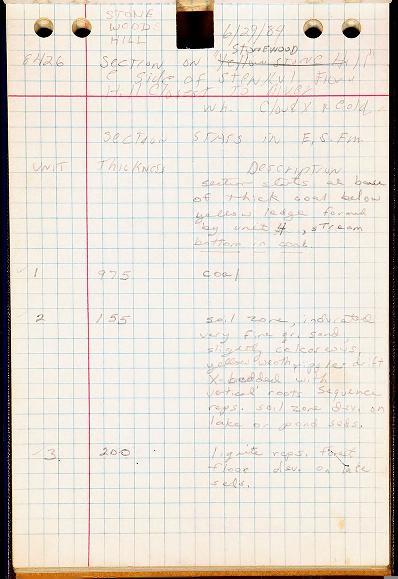 STONE
WOODS
HILL
6/29/84
STONEWOOD
8426 SECTION ON "Yellow STONE Hill"
E Side of Stenkul Fiord
Hill Closest To River
Wh. Cloudy & Cold
Section STARTS IN E.S. Fm
UNIT THICKNESS DESCRIPTION
section starts at base
of thick coal below
yellow ledge formed
by unit 4, stream
bottom in coal
1 975 coal
2 155 soil zone, indurated
very fine gr. sand,
slightly calcareous,
yellow weath, ripple drift
X-bedded with
vertical roots Sequence
reps. soil zone dev. on
lake or pond seds.
3. 200 lignite reps. forest
floor dev. on lake
seds.